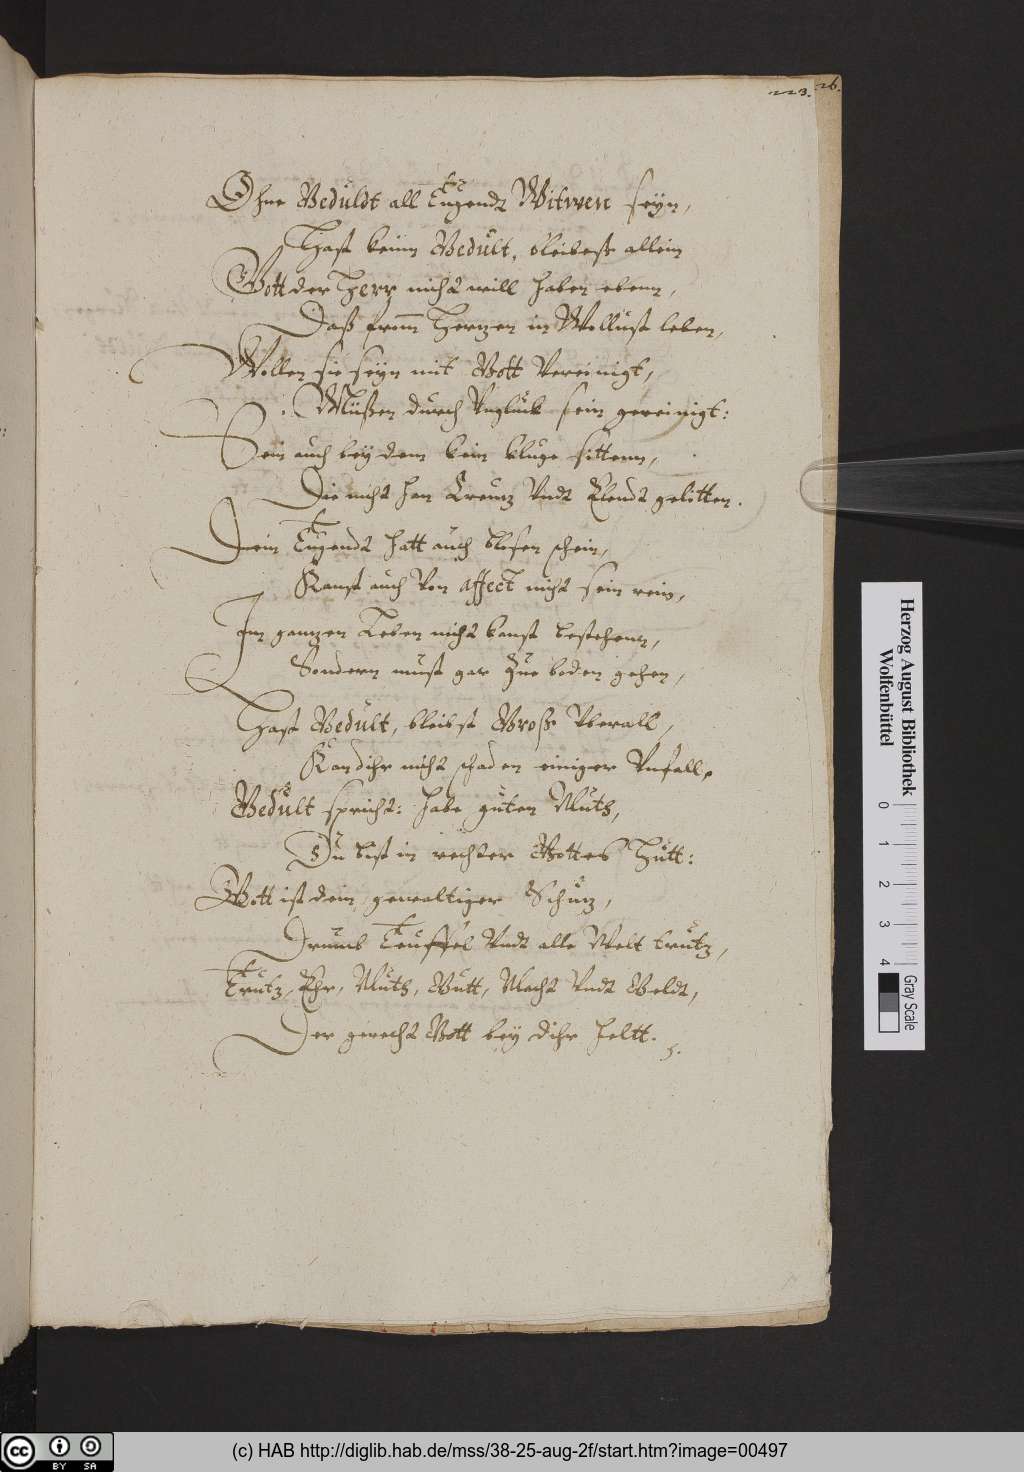 223. 26.
Ohne Geduldt all Tugendt Witwen seyn,
Hast keinn Gedult, bleibest allein
Gott der Herr nicht will haben ebenn,
Daß from̄ Hertzen in Wollust leben,
Wollen sie seyn mit Gott Vereinigt,
Müßen durch Vnglück sein gereinigt:
Sein auch bey dem kein kluge sittenn,
Die nicht han Creutz Vndt Elendt gelitten.
Dein Tugendt hatt auch blosen schein,
Kanst auch Von affect nicht sein rein,
Im gantzen Leben nicht kanst bestehenn,
Sondern must gar Zue boden gehen,
Hast Gedult, bleibst Groß Vberall,
Kan dihr nicht schaden einiger Vnfall,
Gedult spricht: habe guten Muth,
Du bist in rechter Gottes Hutt:
Gott ist dein gewaltiger Schutz,
Drumb Teuffel Vndt alle Welt trutz,
Trutz, Ehr, Muth, Gutt, Macht Vndt Geldt,
Der gerecht Gott bey dihr helt.
Herzog August Bibliothek
Wolfenbüttel
0 1 2 3 4
Gray Scale
cc BY SA
(c) HAB http://diglib.hab.de/mss/38-25-aug-2f/start.htm?image=00497